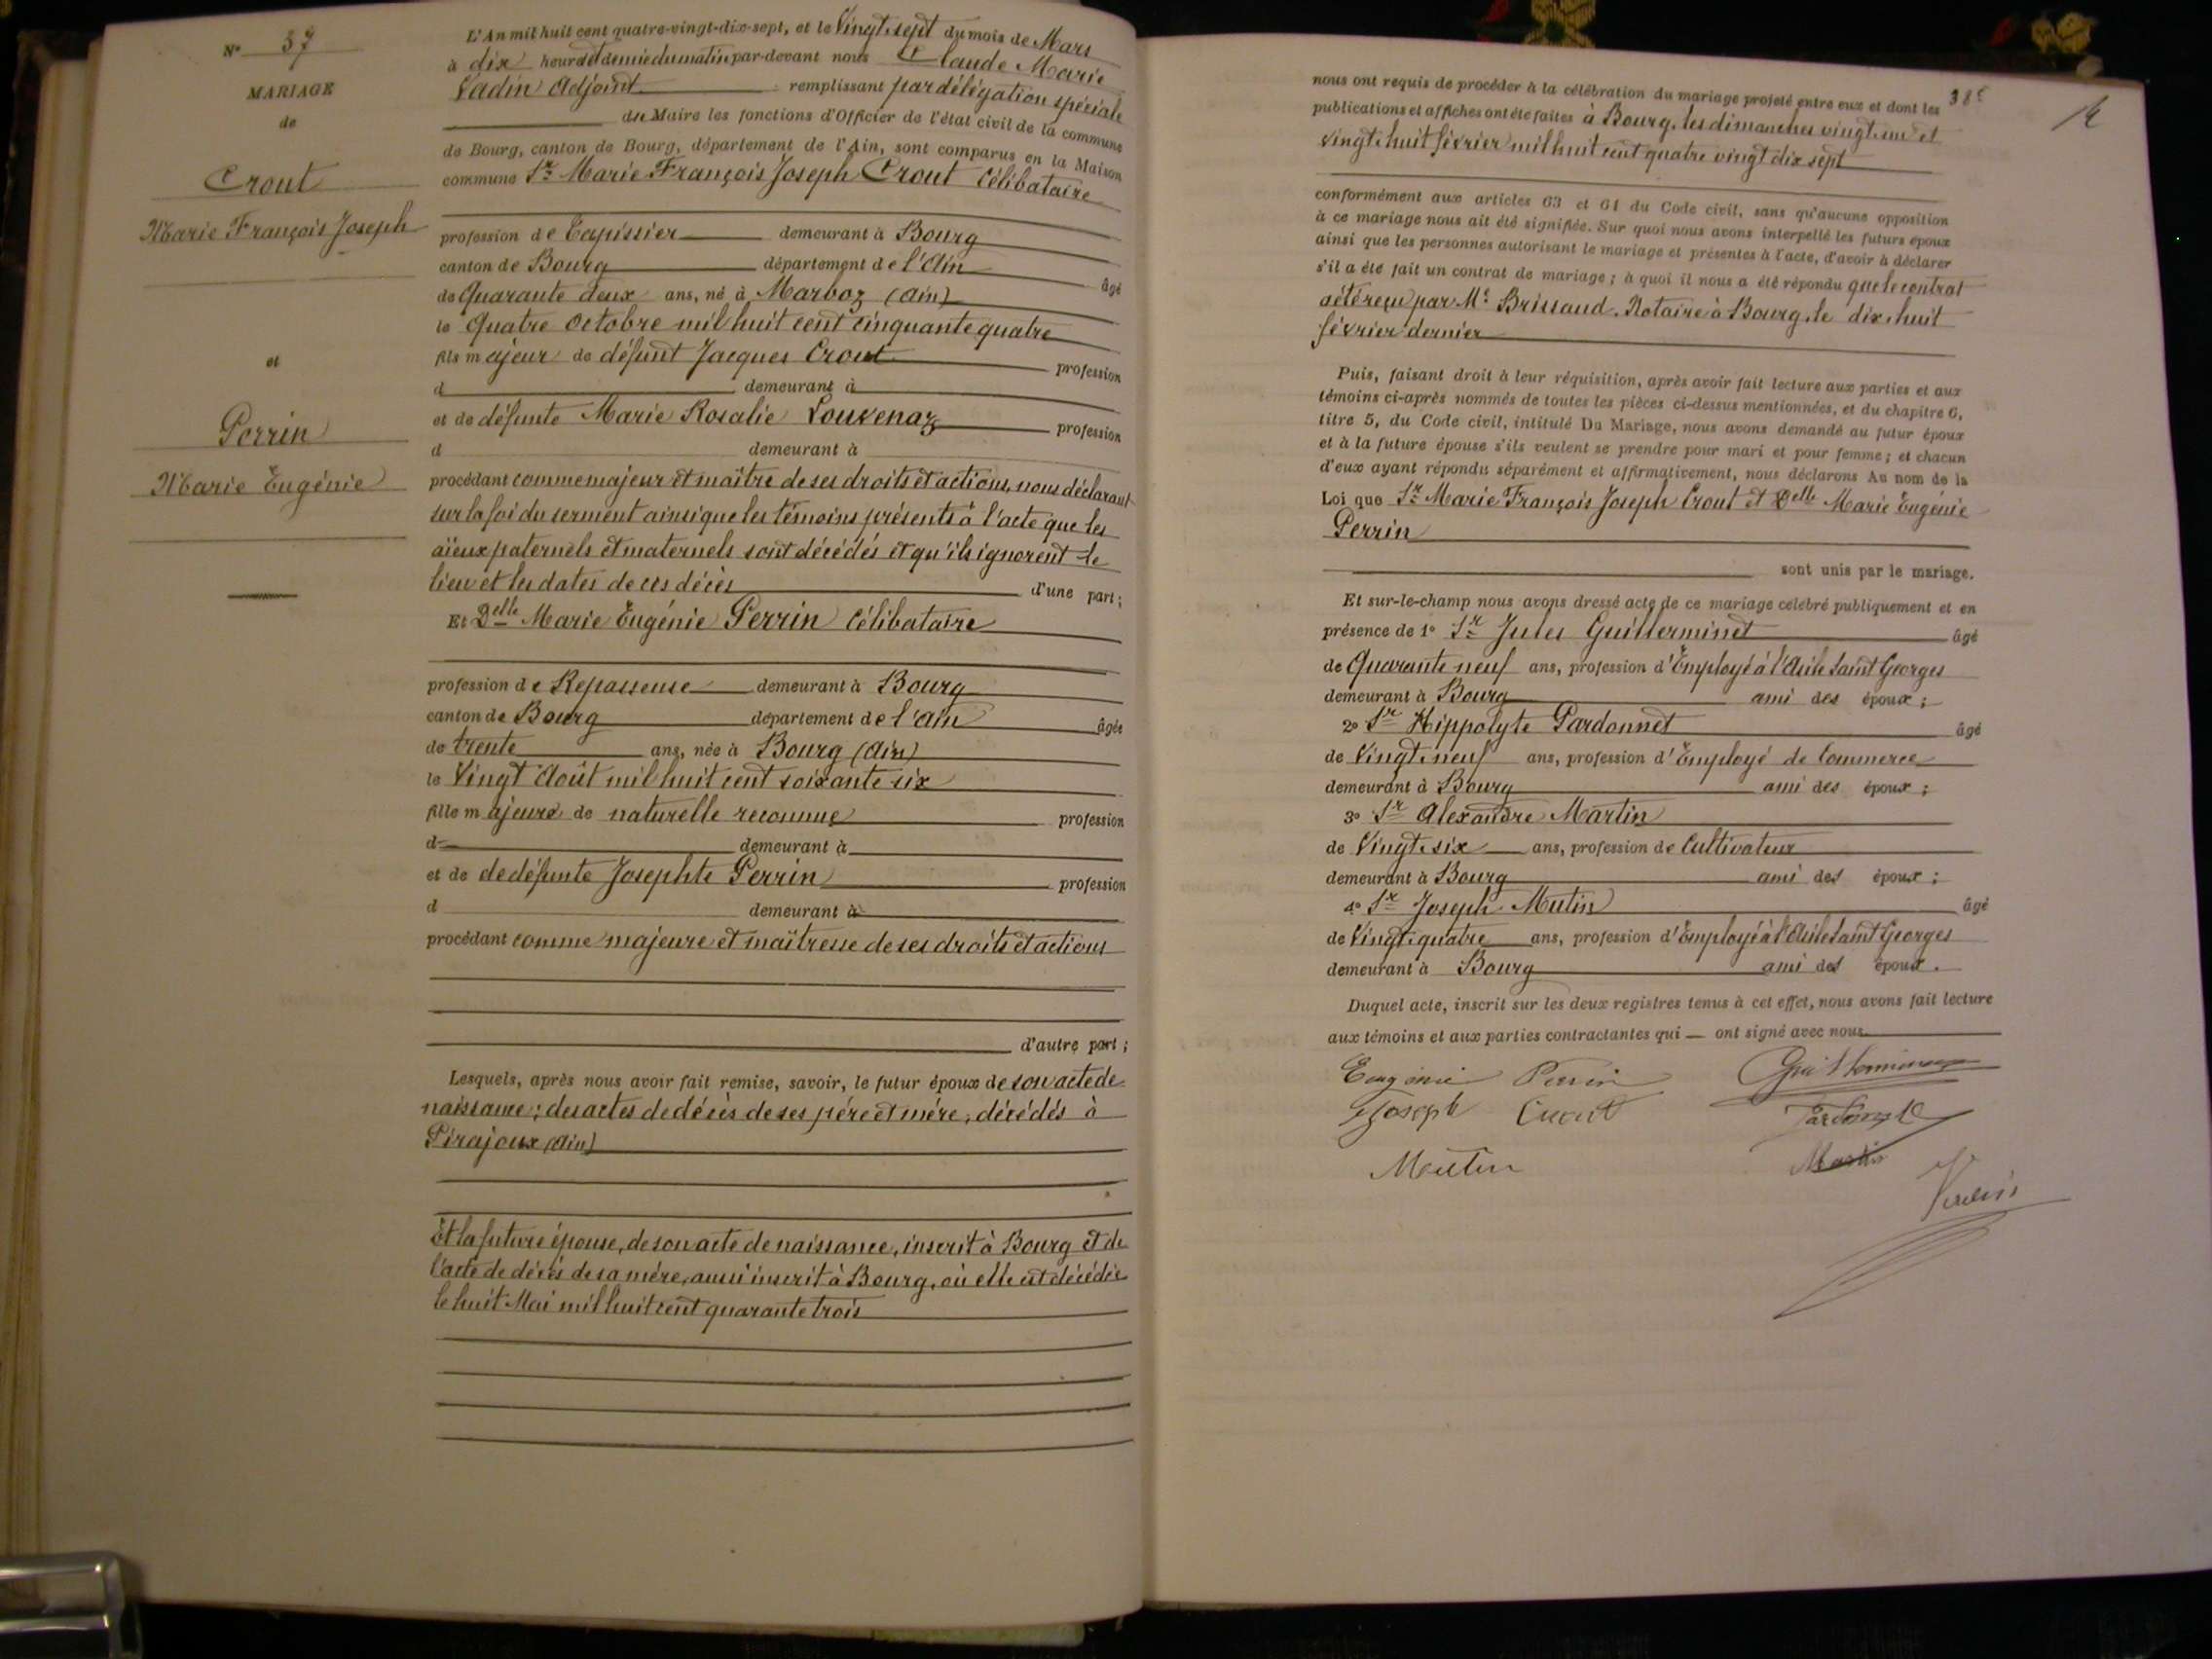 N° 37
MARIAGE
de
Crout
Marie François Joseph
et
Perrin
Marie Eugénie
L'An mil huit cent quatre-vingt-dix-sept, et le Vingt sept du mois de Mars
à dix heures et demie du matin par-devant nous Claude Marie
Vadin Adjoint remplissant par délégation spéciale
du Maire les fonctions d'Officier de l'état civil de la commune
de Bourg, canton de Bourg, département de l'Ain, sont comparus en la Maison
commune Sr Marie François Joseph Crout Célibataire
profession de Tapissier demeurant à Bourg
canton de Bourg département de l'Ain âgé
de Quarante deux ans, né à Marboz (Ain)
le Quatre Octobre mil huit cent cinquante quatre
fils majeur de défunt Jacques Crout profession
d demeurant à
et de défunte Marie Rosalie Louvenaz profession
d demeurant à
procédant comme majeur et maître de ses droits et actions, nous déclarant
sur la foi du serment ainsi que les témoins présents à l'acte que les
aïeux paternels et maternels sont décédés et qu'ils ignorent le
lieu et les dates de ces décès d'une part ;
Et Delle Marie Eugénie Perrin Célibataire
profession de Repasseuse demeurant à Bourg
canton de Bourg département de l'Ain âgée
de trente ans, née à Bourg (Ain)
le Vingt Août mil huit cent soixante six
fille majeure de naturelle reconnue profession
d demeurant à
et de de défunte Josephte Perrin profession
d demeurant à
procédant comme majeure et maîtresse de ses droits et actions
d'autre part ;
Lesquels, après nous avoir fait remise, savoir, le futur époux de son acte de
naissance ; des actes de décès de ses père et mère, décédés à
Pirajoux (Ain)
Et la future épouse, de son acte de naissance, inscrit à Bourg et de
l'acte de décès de sa mère, aussi inscrit à Bourg, où elle est décédée
le huit Mai mil huit cent quarante trois
nous ont requis de procéder à la célébration du mariage projeté entre eux et dont les 38e
publications et affiches ont été faites à Bourg, les dimanches vingt un et
vingt huit février mil huit cent quatre vingt dix sept
conformément aux articles 63 et 64 du Code civil, sans qu'aucune opposition
à ce mariage nous ait été signifiée. Sur quoi nous avons interpellé les futurs époux
ainsi que les personnes autorisant le mariage et présentes à l'acte, d'avoir à déclarer
s'il a été fait un contrat de mariage ; à quoi il nous a été répondu que le contrat
a été reçu par Me Brissaud, Notaire à Bourg, le dix huit
février dernier
Puis, faisant droit à leur réquisition, après avoir fait lecture aux parties et aux
témoins ci-après nommés de toutes les pièces ci-dessus mentionnées, et du chapitre 6,
titre 5, du Code civil, intitulé Du Mariage, nous avons demandé au futur époux
et à la future épouse s'ils veulent se prendre pour mari et pour femme ; et chacun
d'eux ayant répondu séparément et affirmativement, nous déclarons Au nom de la
Loi que Sr Marie François Joseph Crout et Delle Marie Eugénie
Perrin
sont unis par le mariage.
Et sur-le-champ nous avons dressé acte de ce mariage célébré publiquement et en
présence de 1° Sr Jules Guillerminet âgé
de Quarante neuf ans, profession d'Employé à l'Asile Saint Georges
demeurant à Bourg ami des époux ;
2° Sr Hippolyte Pardonnet âgé
de Vingt neuf ans, profession d'Employé de Commerce
demeurant à Bourg ami des époux ;
3° Sr Alexandre Martin
de Vingt six ans, profession de Cultivateur
demeurant à Bourg ami des époux ;
4° Sr Joseph Mutin âgé
de Vingt quatre ans, profession d'Employé à l'Asile Saint Georges
demeurant à Bourg ami des époux.
Duquel acte, inscrit sur les deux registres tenus à cet effet, nous avons fait lecture
aux témoins et aux parties contractantes qui — ont signé avec nous.
Eugénie Perrin
Joseph Crout
Mutin
Martin
Vadin